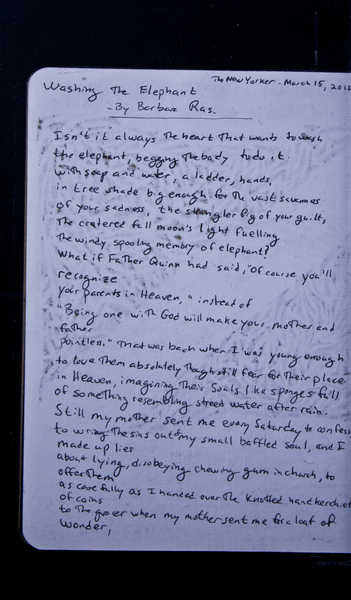 The New Yorker - March 15, 2010
Washing The Elephant
- By Barbara Ras.
Isn't it always the heart that wants to wash
the elephant, begging the body to do it
with soap and water, a ladder, hands,
in tree shade big enough for the vast savannas
of your sadness, the strangler fig of your guilt,
the cratered full moon's light fuelling
the windy spooling memory of elephant?
What if Father Quinn had said, "Of course you'll
recognize
your parents in Heaven," instead of
"Being one with God will make your mother and
father
pointless." That was back when I was young enough
to love them absolutely though still fear for their place
in Heaven, imagining their souls like sponges full
of something resembling street water after rain.
Still my mother sent me every Saturday to confess
to wring the sins out of my small baffled soul, and I
made up lies
about lying, disobeying, chewing gum in church, to
offer them
as carefully as I handed over the knotted handkerchief
of coins
to the grocer when my mother sent me for a loaf of
Wonder,